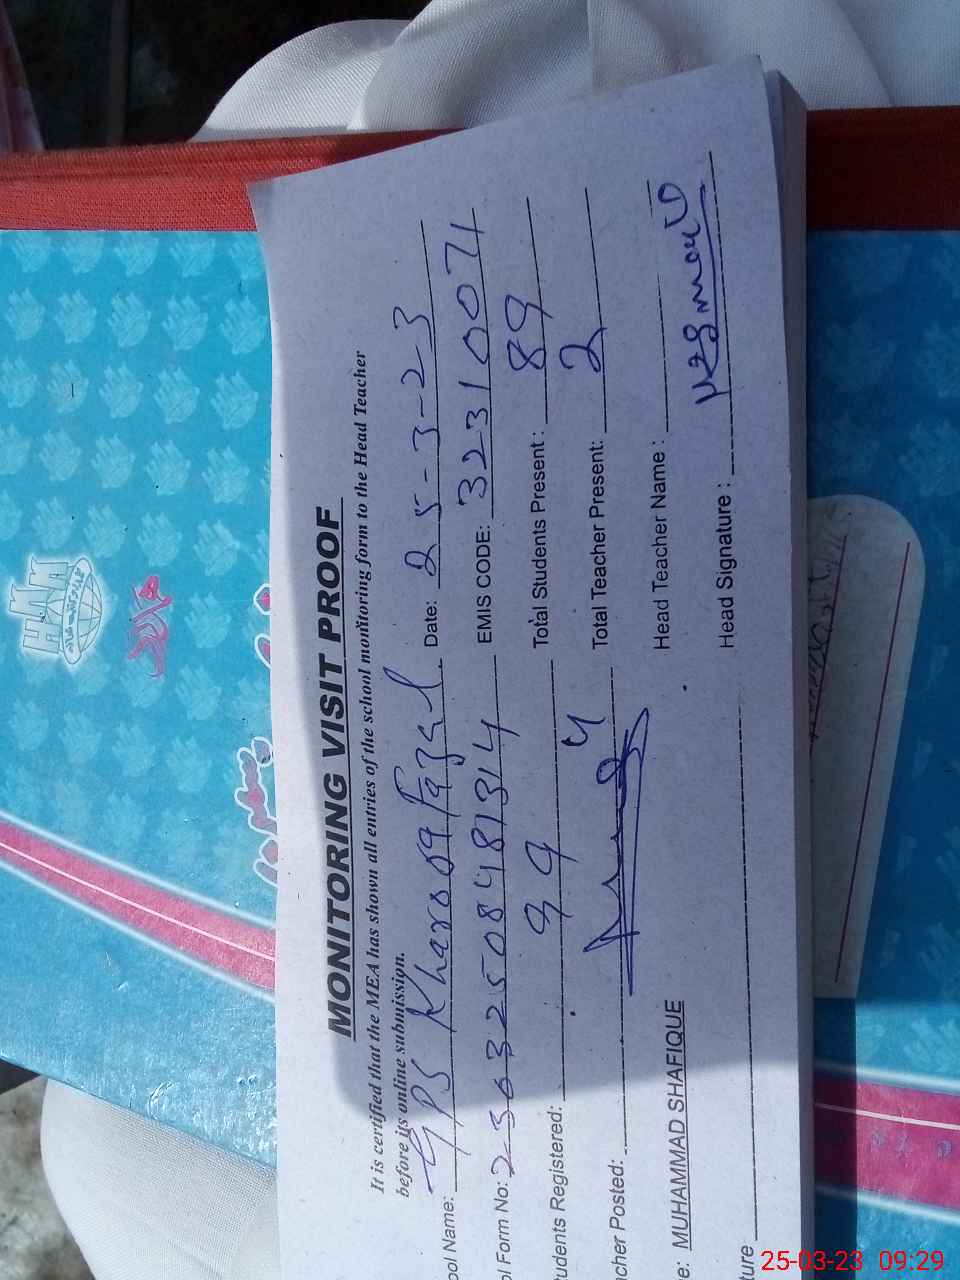 MONITORING VISIT PROOF
It is certified that the MEA has shown all entries of the school monitoring form to the Head Teacher
before its online submission.
ool Name: GPS Kharora Fazal Date: 25-3-23
ol Form No: 2303250848134 EMIS CODE: 32310071
tudents Registered: 99 Total Students Present : 89
acher Posted: 4 Total Teacher Present: 2
e: MUHAMMAD SHAFIQUE Head Teacher Name :
ture Head Signature :
HMA
25-03-23 09:29